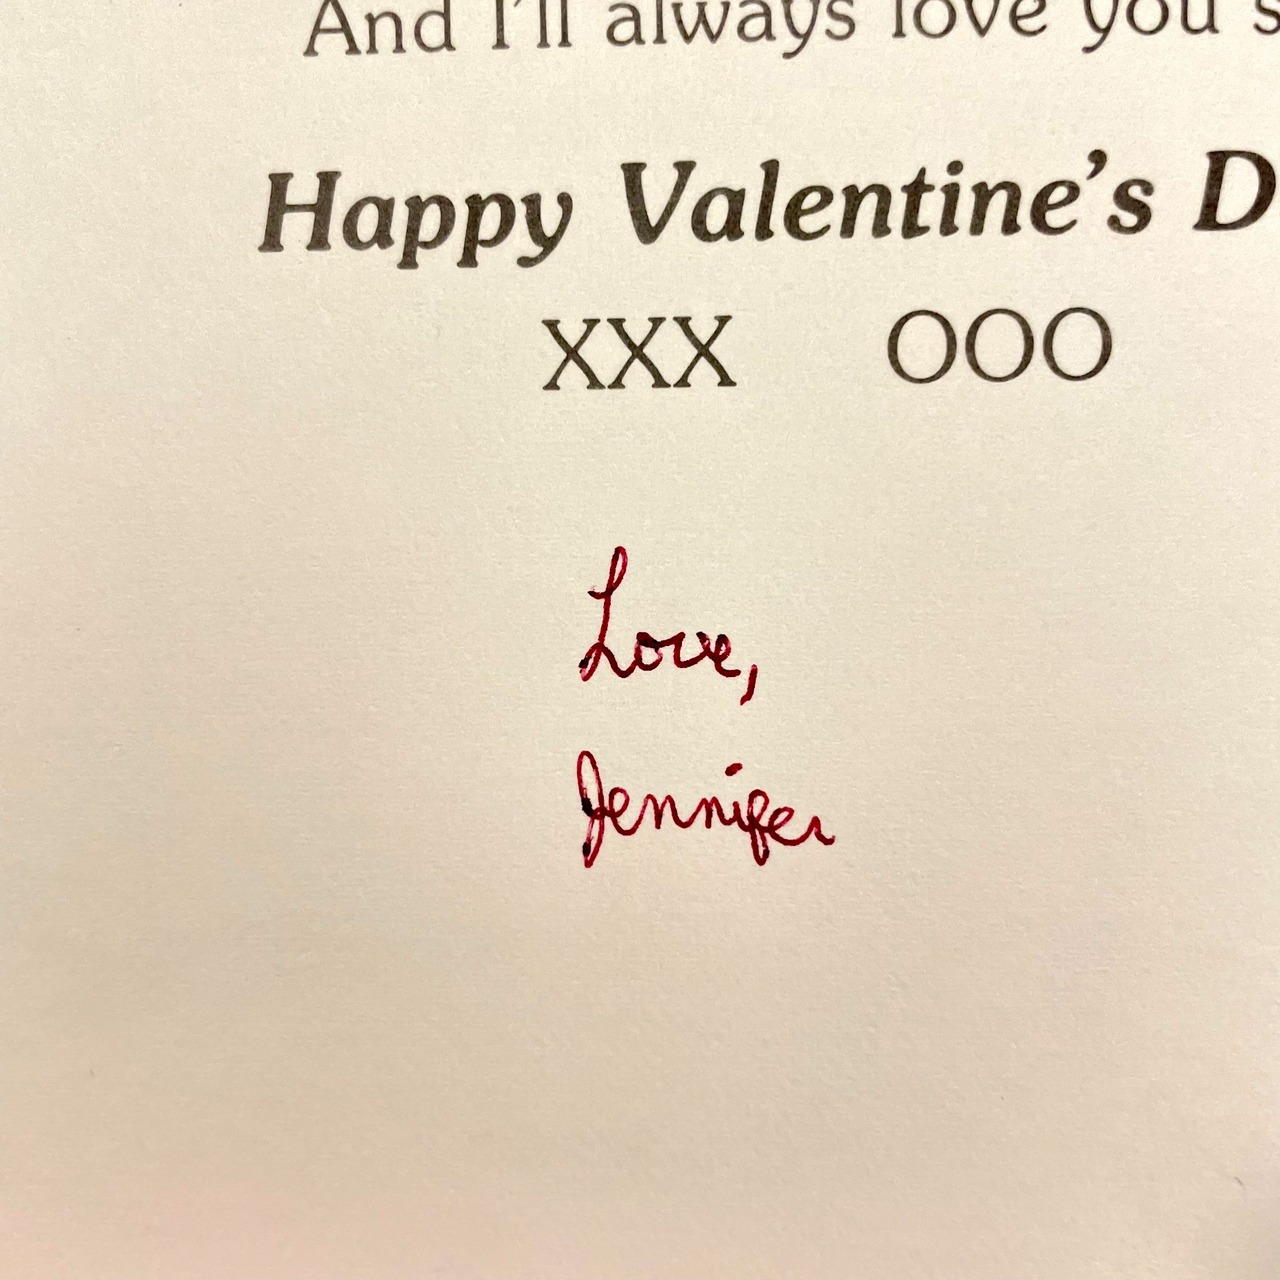 And I'll always love you s
Happy Valentine's D
XXX OOO
Love,
Jennifer